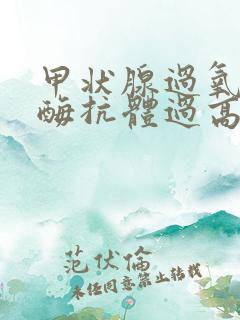 甲状腺過氧
酶抗體過高
范伏倫
未任同意禁止转载